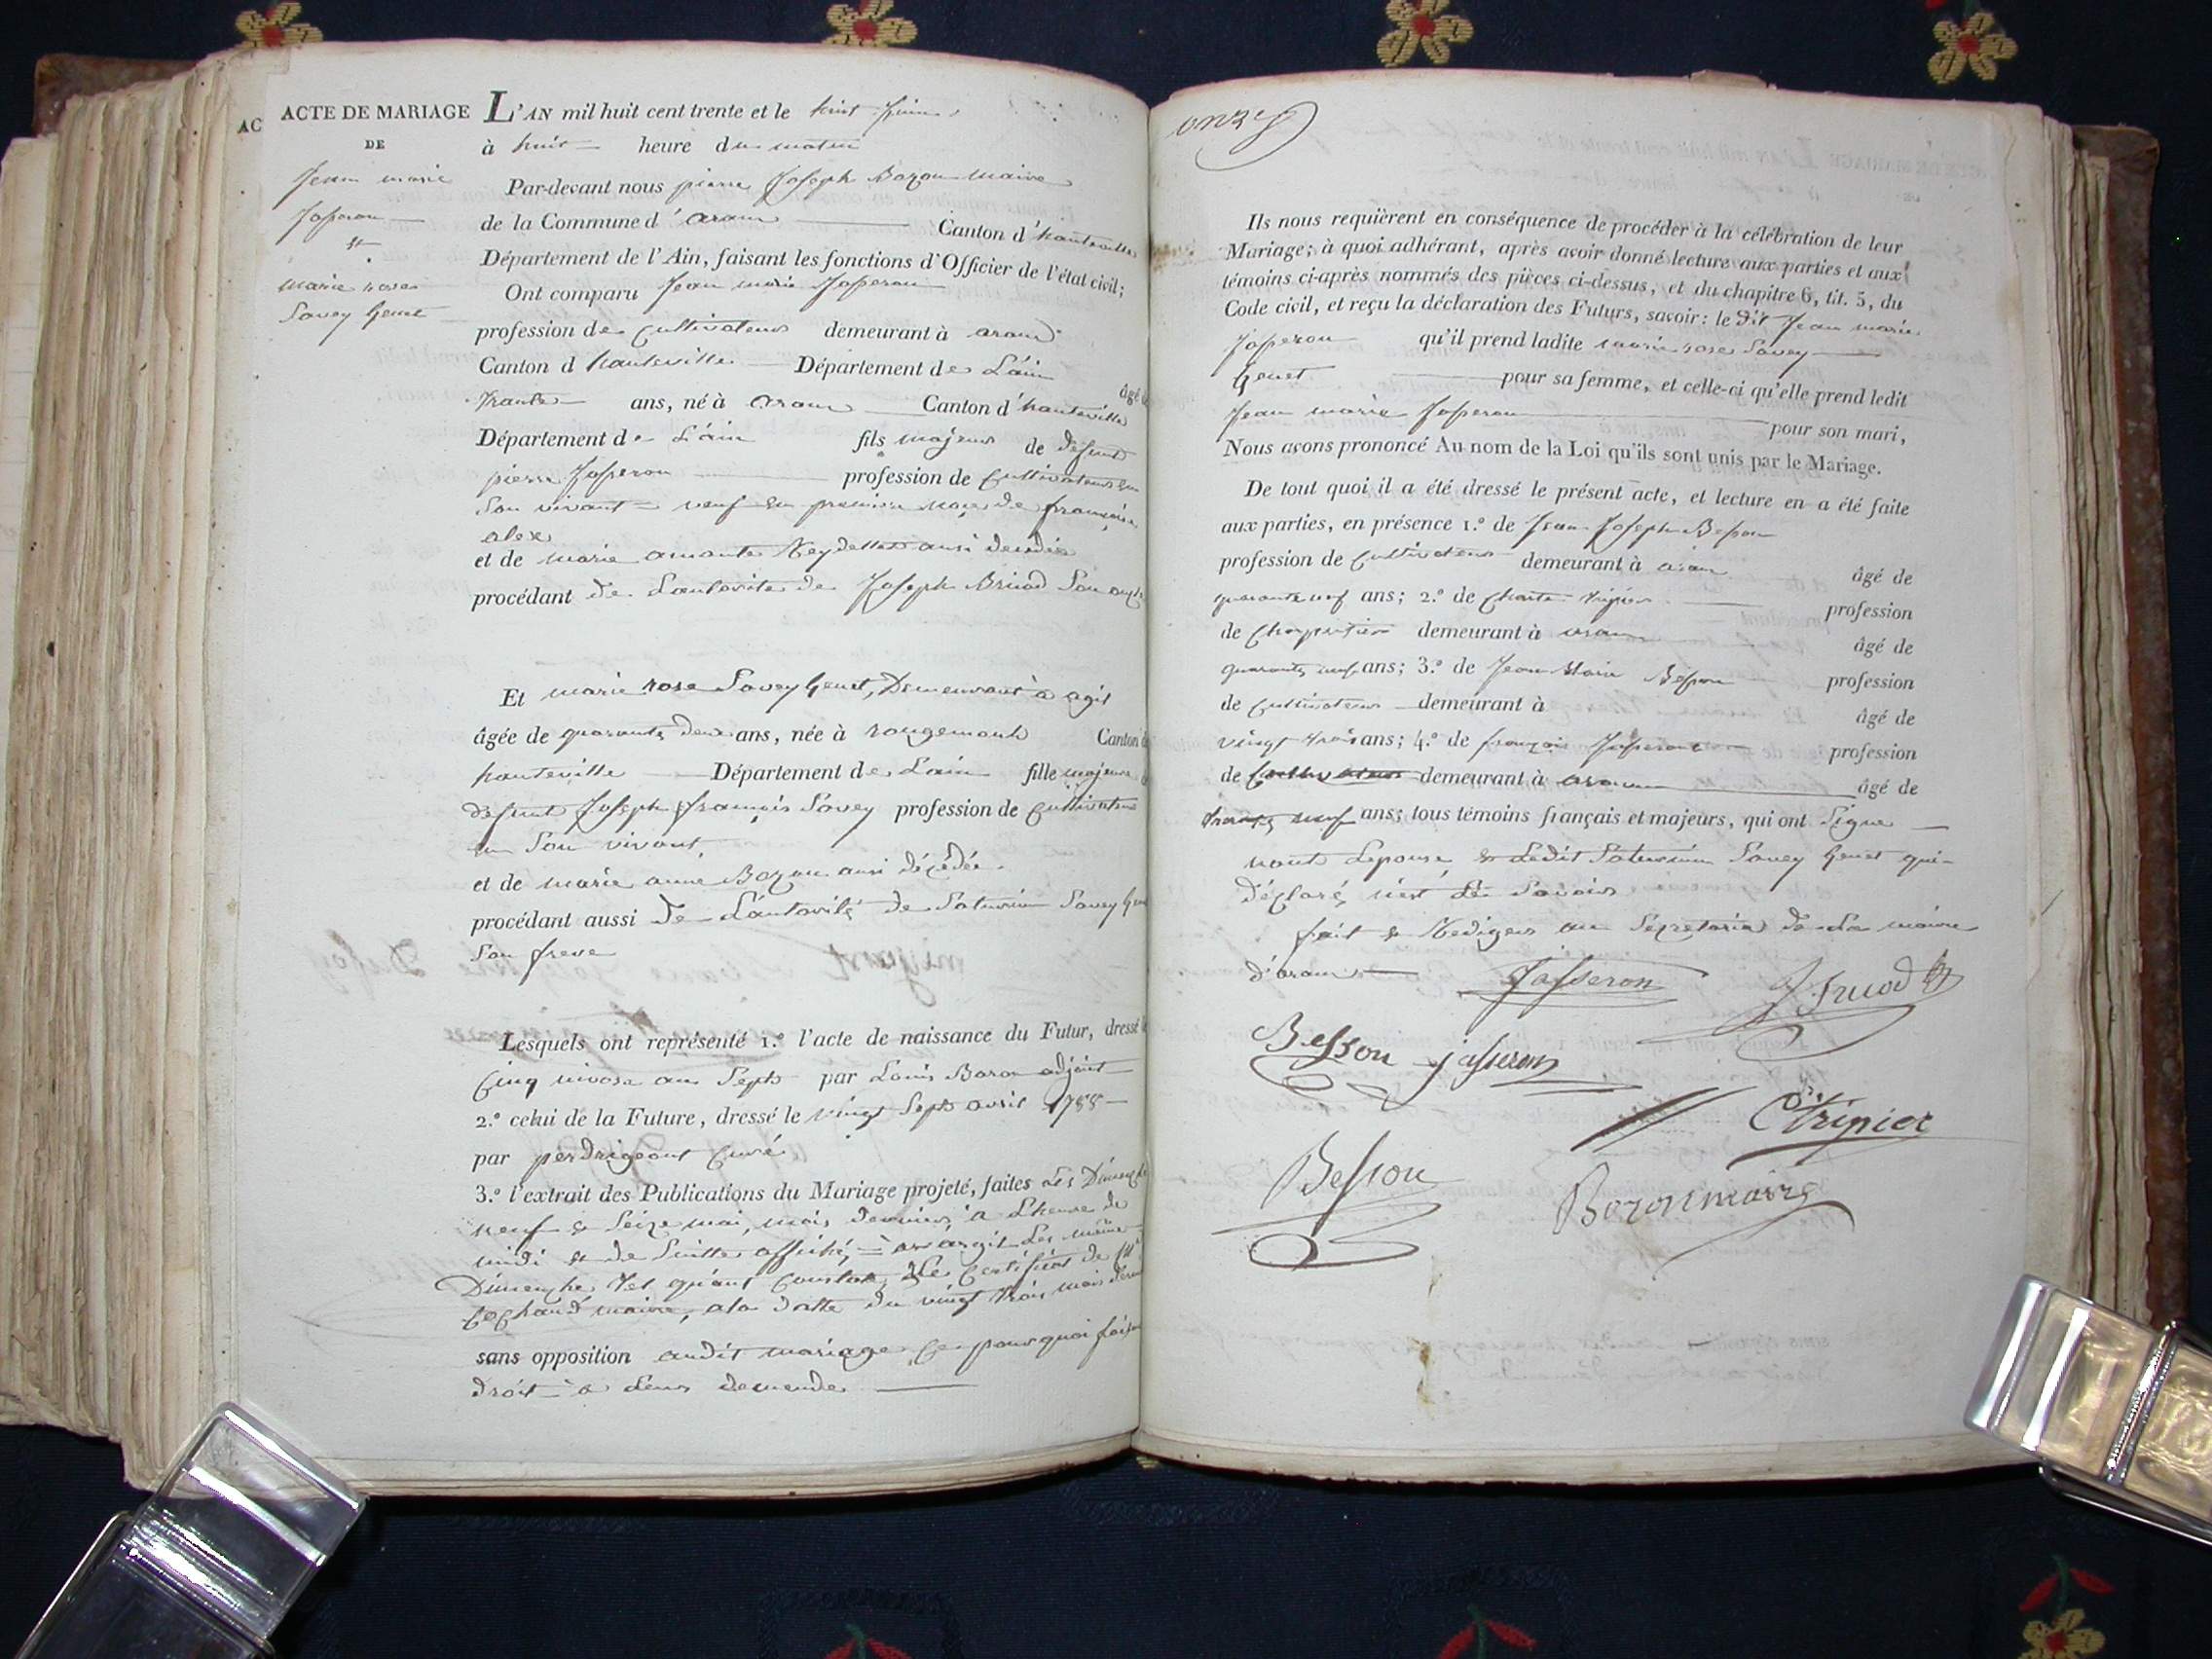 AC
ACTE DE MARIAGE
DE
jean marie
Jasseron
et
marie rose
Savey Genet
L'AN mil huit cent trente et le huit juin
à huit heure du matin
Par-devant nous pierre Joseph Bozon maire
de la Commune d'aran Canton d'hauteville
Département de l'Ain, faisant les fonctions d'Officier de l'état civil;
Ont comparu Jean marie Jasseron
profession de cultivateur demeurant à aran
Canton d hauteville Département de L'ain âgé
trante ans, né à aran Canton d'hauteville
Département de L'ain fils majeur de defunt
pierre Jasseron profession de cultivateur en
son vivant veuf en premiere noce de françoise
alex
et de marie amante aussi
procédant de Lautorite de Joseph Son oncle
Et marie rose Savey Genet, Demeurant à agit
âgée de quarante deux ans, née à rougemont Canton d
hauteville Département de Lain fille majeure
defunt Joseph françois Savey profession de cultivateur
en Son vivant
et de marie anne Bozon aussi décédée
procédant aussi De L'autorité de Saturnin Savey Gen
Son frere
Lesquels ont représenté 1.º l'acte de naissance du Futur, dressé l
cinq nivose an Sept par Louis Boron adjoint
2.º celui de la Future, dressé le vingt Sept avril 1788
par perdrigeont curé
3.º l'extrait des Publications du Mariage projeté, faites Les Dimenche
neuf & Seize mai, mois dernier, à L'heure de
midi et de Suitte affiché, à argit Les même
Dimenche, tel qu'ant Constate, Le certificat de Mr
Cochand maire, a la datte du vingt trois mai
sans opposition audit mariage Ce pourquoi
droit à Leur demende
onze
Ils nous requièrent en conséquence de procéder à la célébration de leur
Mariage; à quoi adhérant, après avoir donné lecture aux parties et aux
témoins ci-après nommés des pièces ci-dessus, et du chapitre 6, tit. 5, du
Code civil, et reçu la déclaration des Futurs, savoir: le dit Jean marie
Jasseron qu'il prend ladite marie rose Savey
Genet pour sa femme, et celle-ci qu'elle prend ledit
Jean marie Jasseron pour son mari,
Nous avons prononcé Au nom de la Loi qu'ils sont unis par le Mariage.
De tout quoi il a été dressé le présent acte, et lecture en a été faite
aux parties, en présence 1.º de Jean Joseph Besson
profession de cultivateur demeurant à aran âgé de
quarante neuf ans; 2.º de tripier profession
de Charpentier demeurant à aran âgé de
quarante neuf ans; 3.º de Jean Marie Besson profession
de cultivateur demeurant à âgé de
vingt trois ans; 4.º de françois Jasseron profession
de cultivateur demeurant à aran âgé de
neuf ans; tous témoins français et majeurs, qui ont Signe
nont Lepouse, & Ledit Saturnin Savey Genet qui
déclaré n'est Le Savoir
fait & Redigers au Sécretaria de La maire
d'aran
Jasseron
Besson jasseron
tripier
Besson
Bozon maire